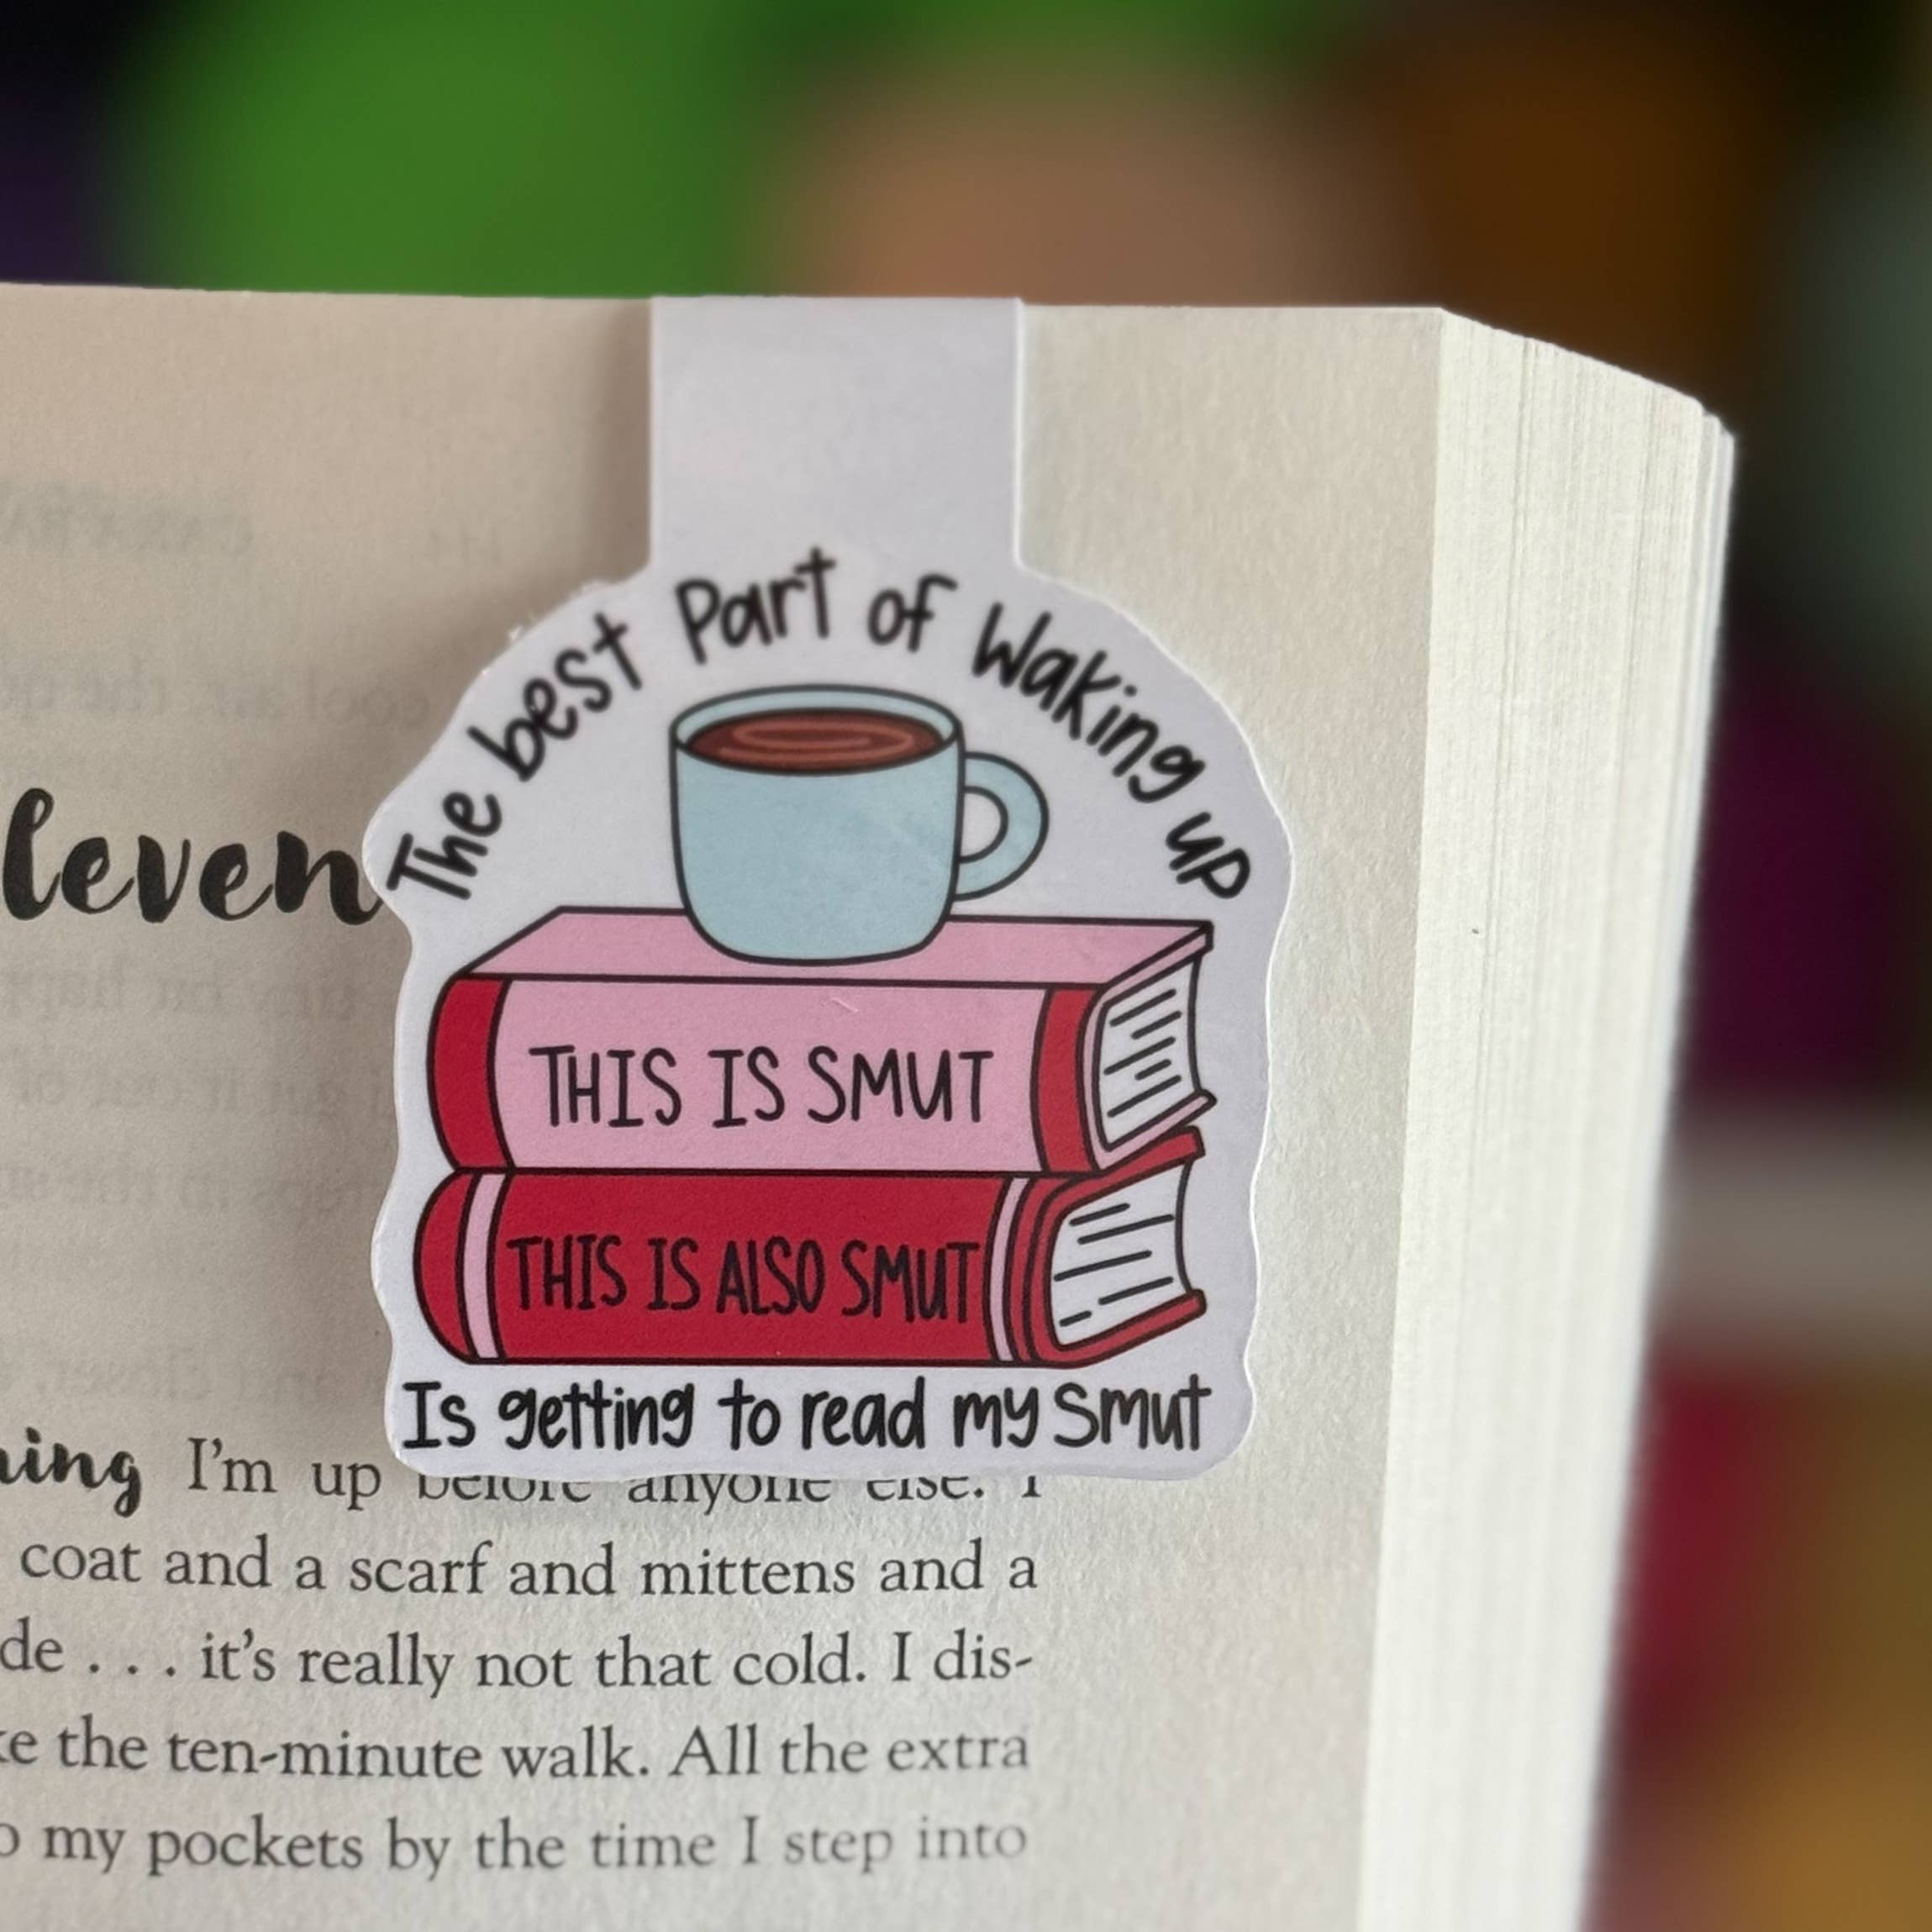 The best Part of Waking up
THIS IS SMUT
THIS IS ALSO SMUT
Is getting to read my Smut
leven
ning I'm up before anyone else. I
coat and a scarf and mittens and a
de . . . it's really not that cold. I dis-
ke the ten-minute walk. All the extra
o my pockets by the time I step into